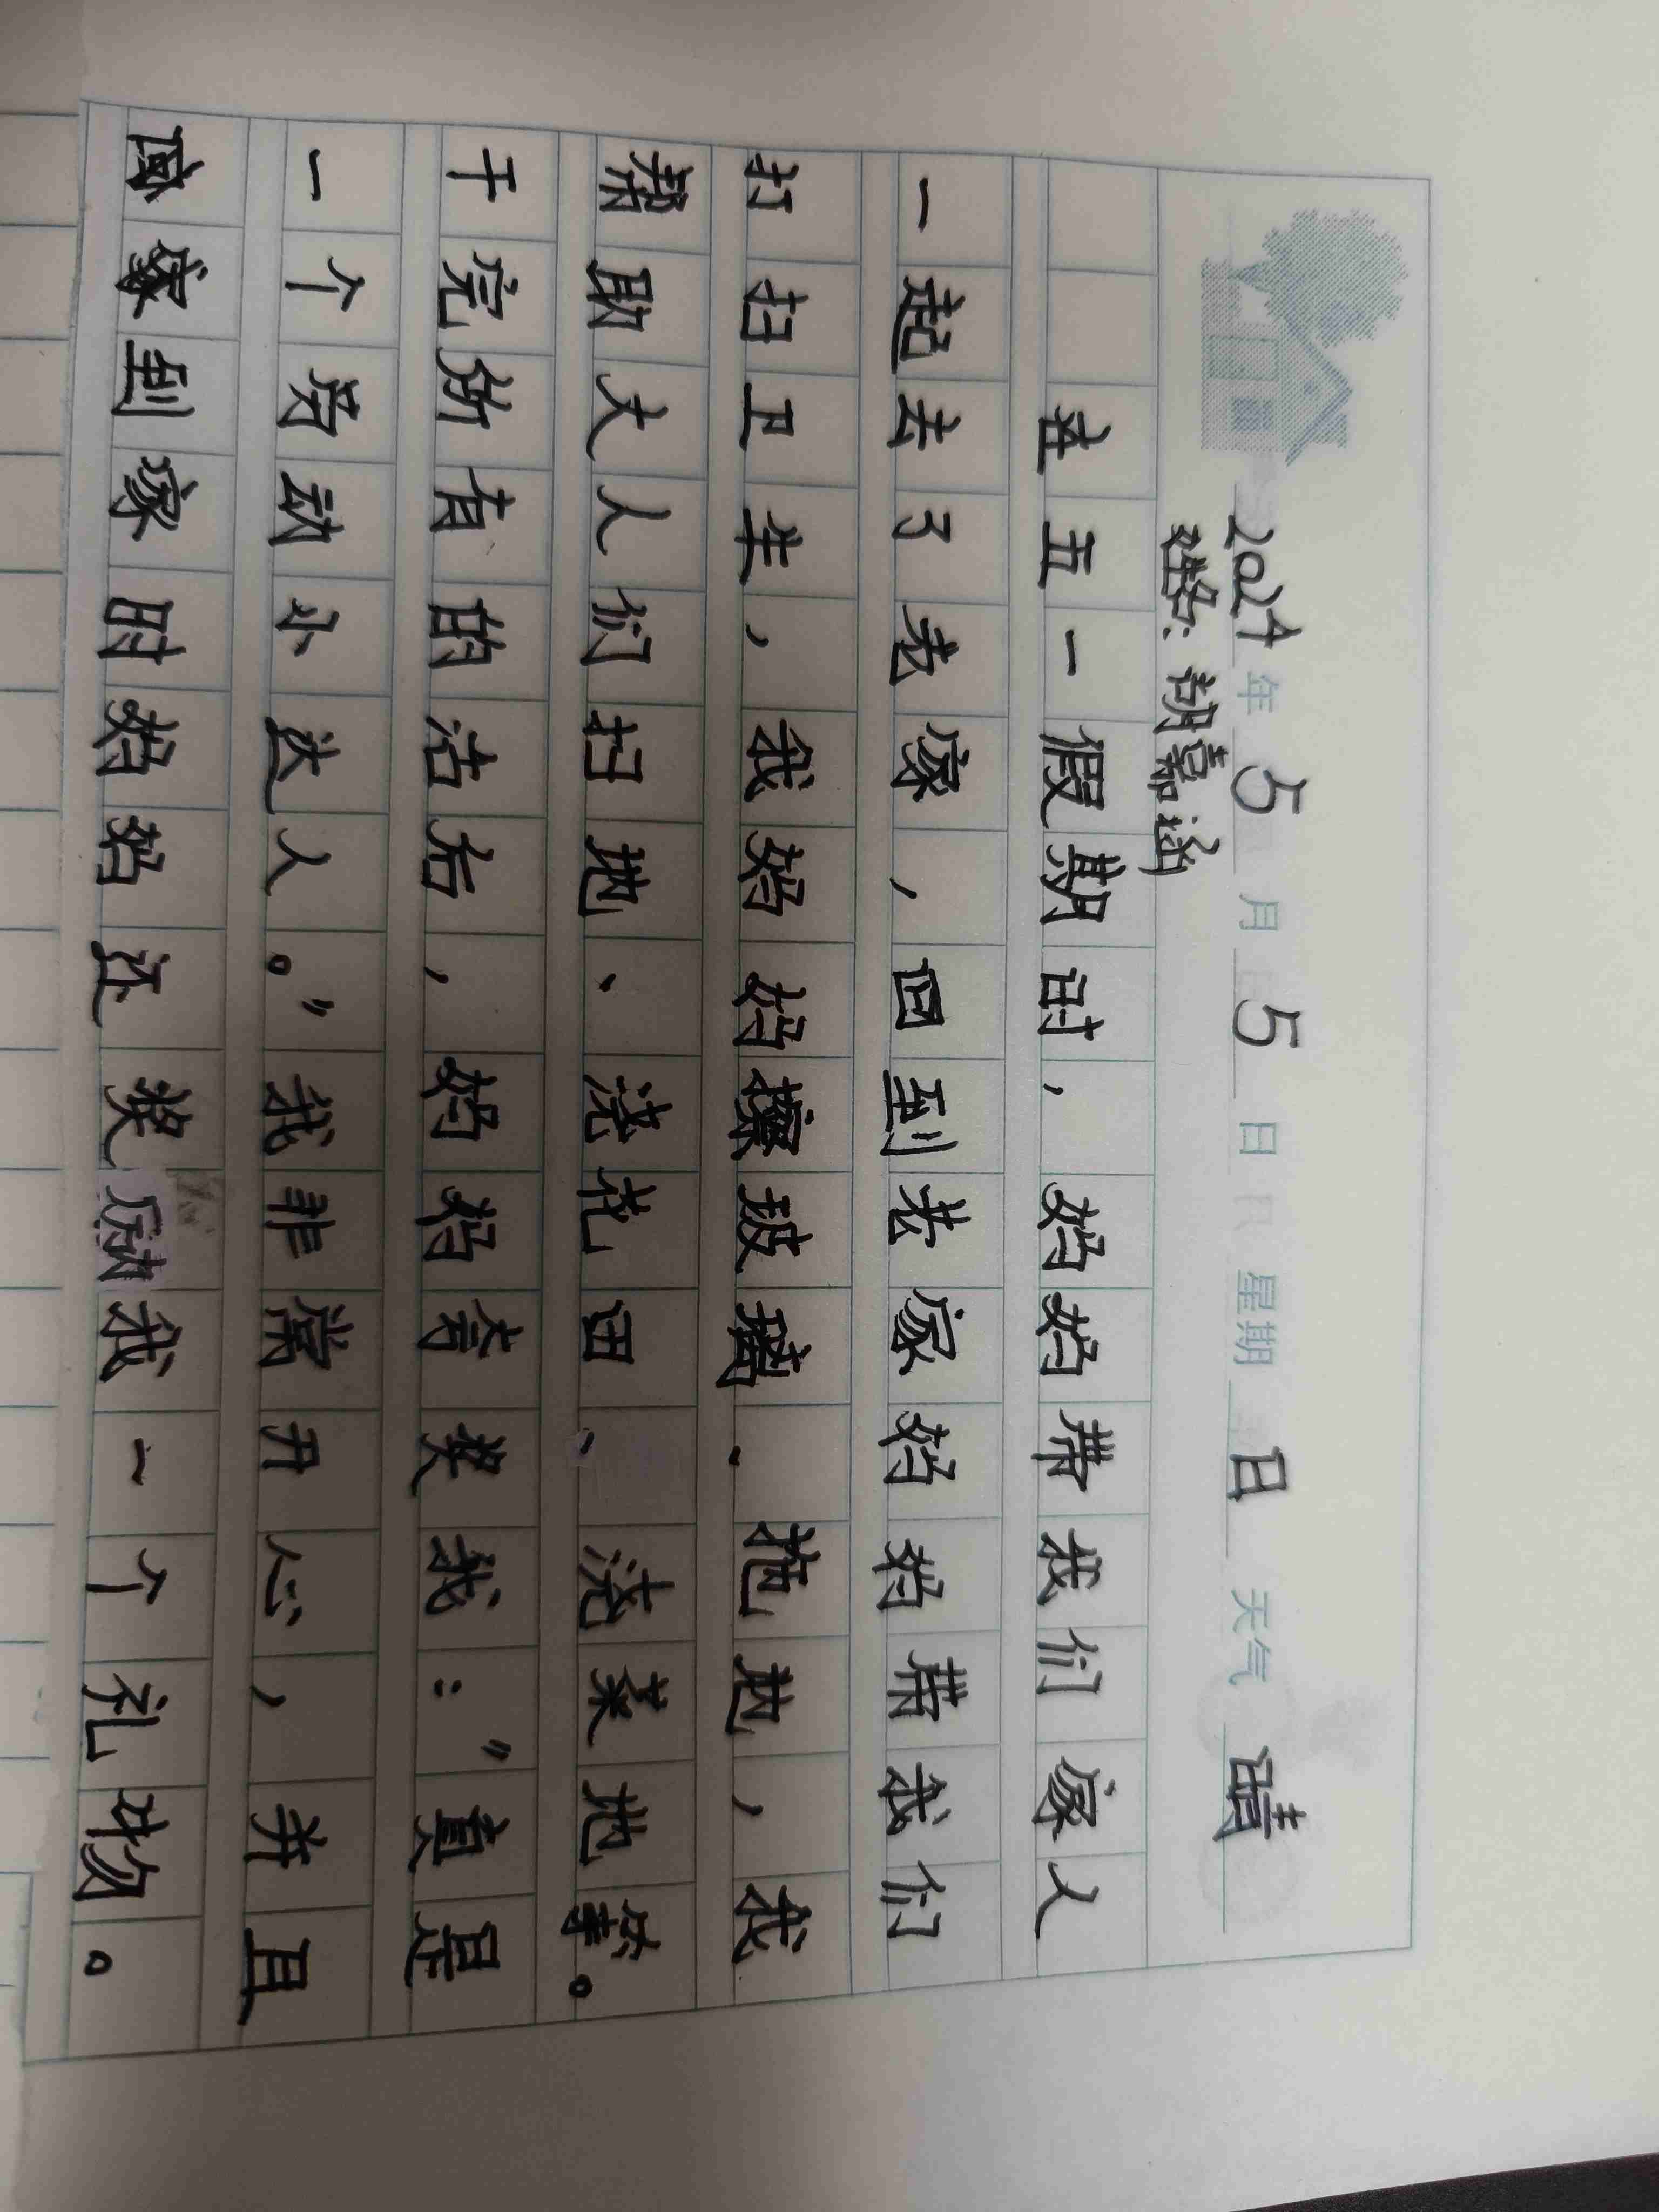 2024年5月5日 星期日 天气晴
姓名:胡嘉涵
在五一假期时,妈妈带我们家人
一起去了老家,回到老家妈妈带我们
打扫卫生,我妈妈擦玻璃、拖地,我
帮助大人们扫地、浇花田、浇菜地等。
干完所有的活后,妈妈夸奖我:”真是
一个劳动小达人。”我非常开心,并且
回家到家时妈妈还奖励我一个礼物。